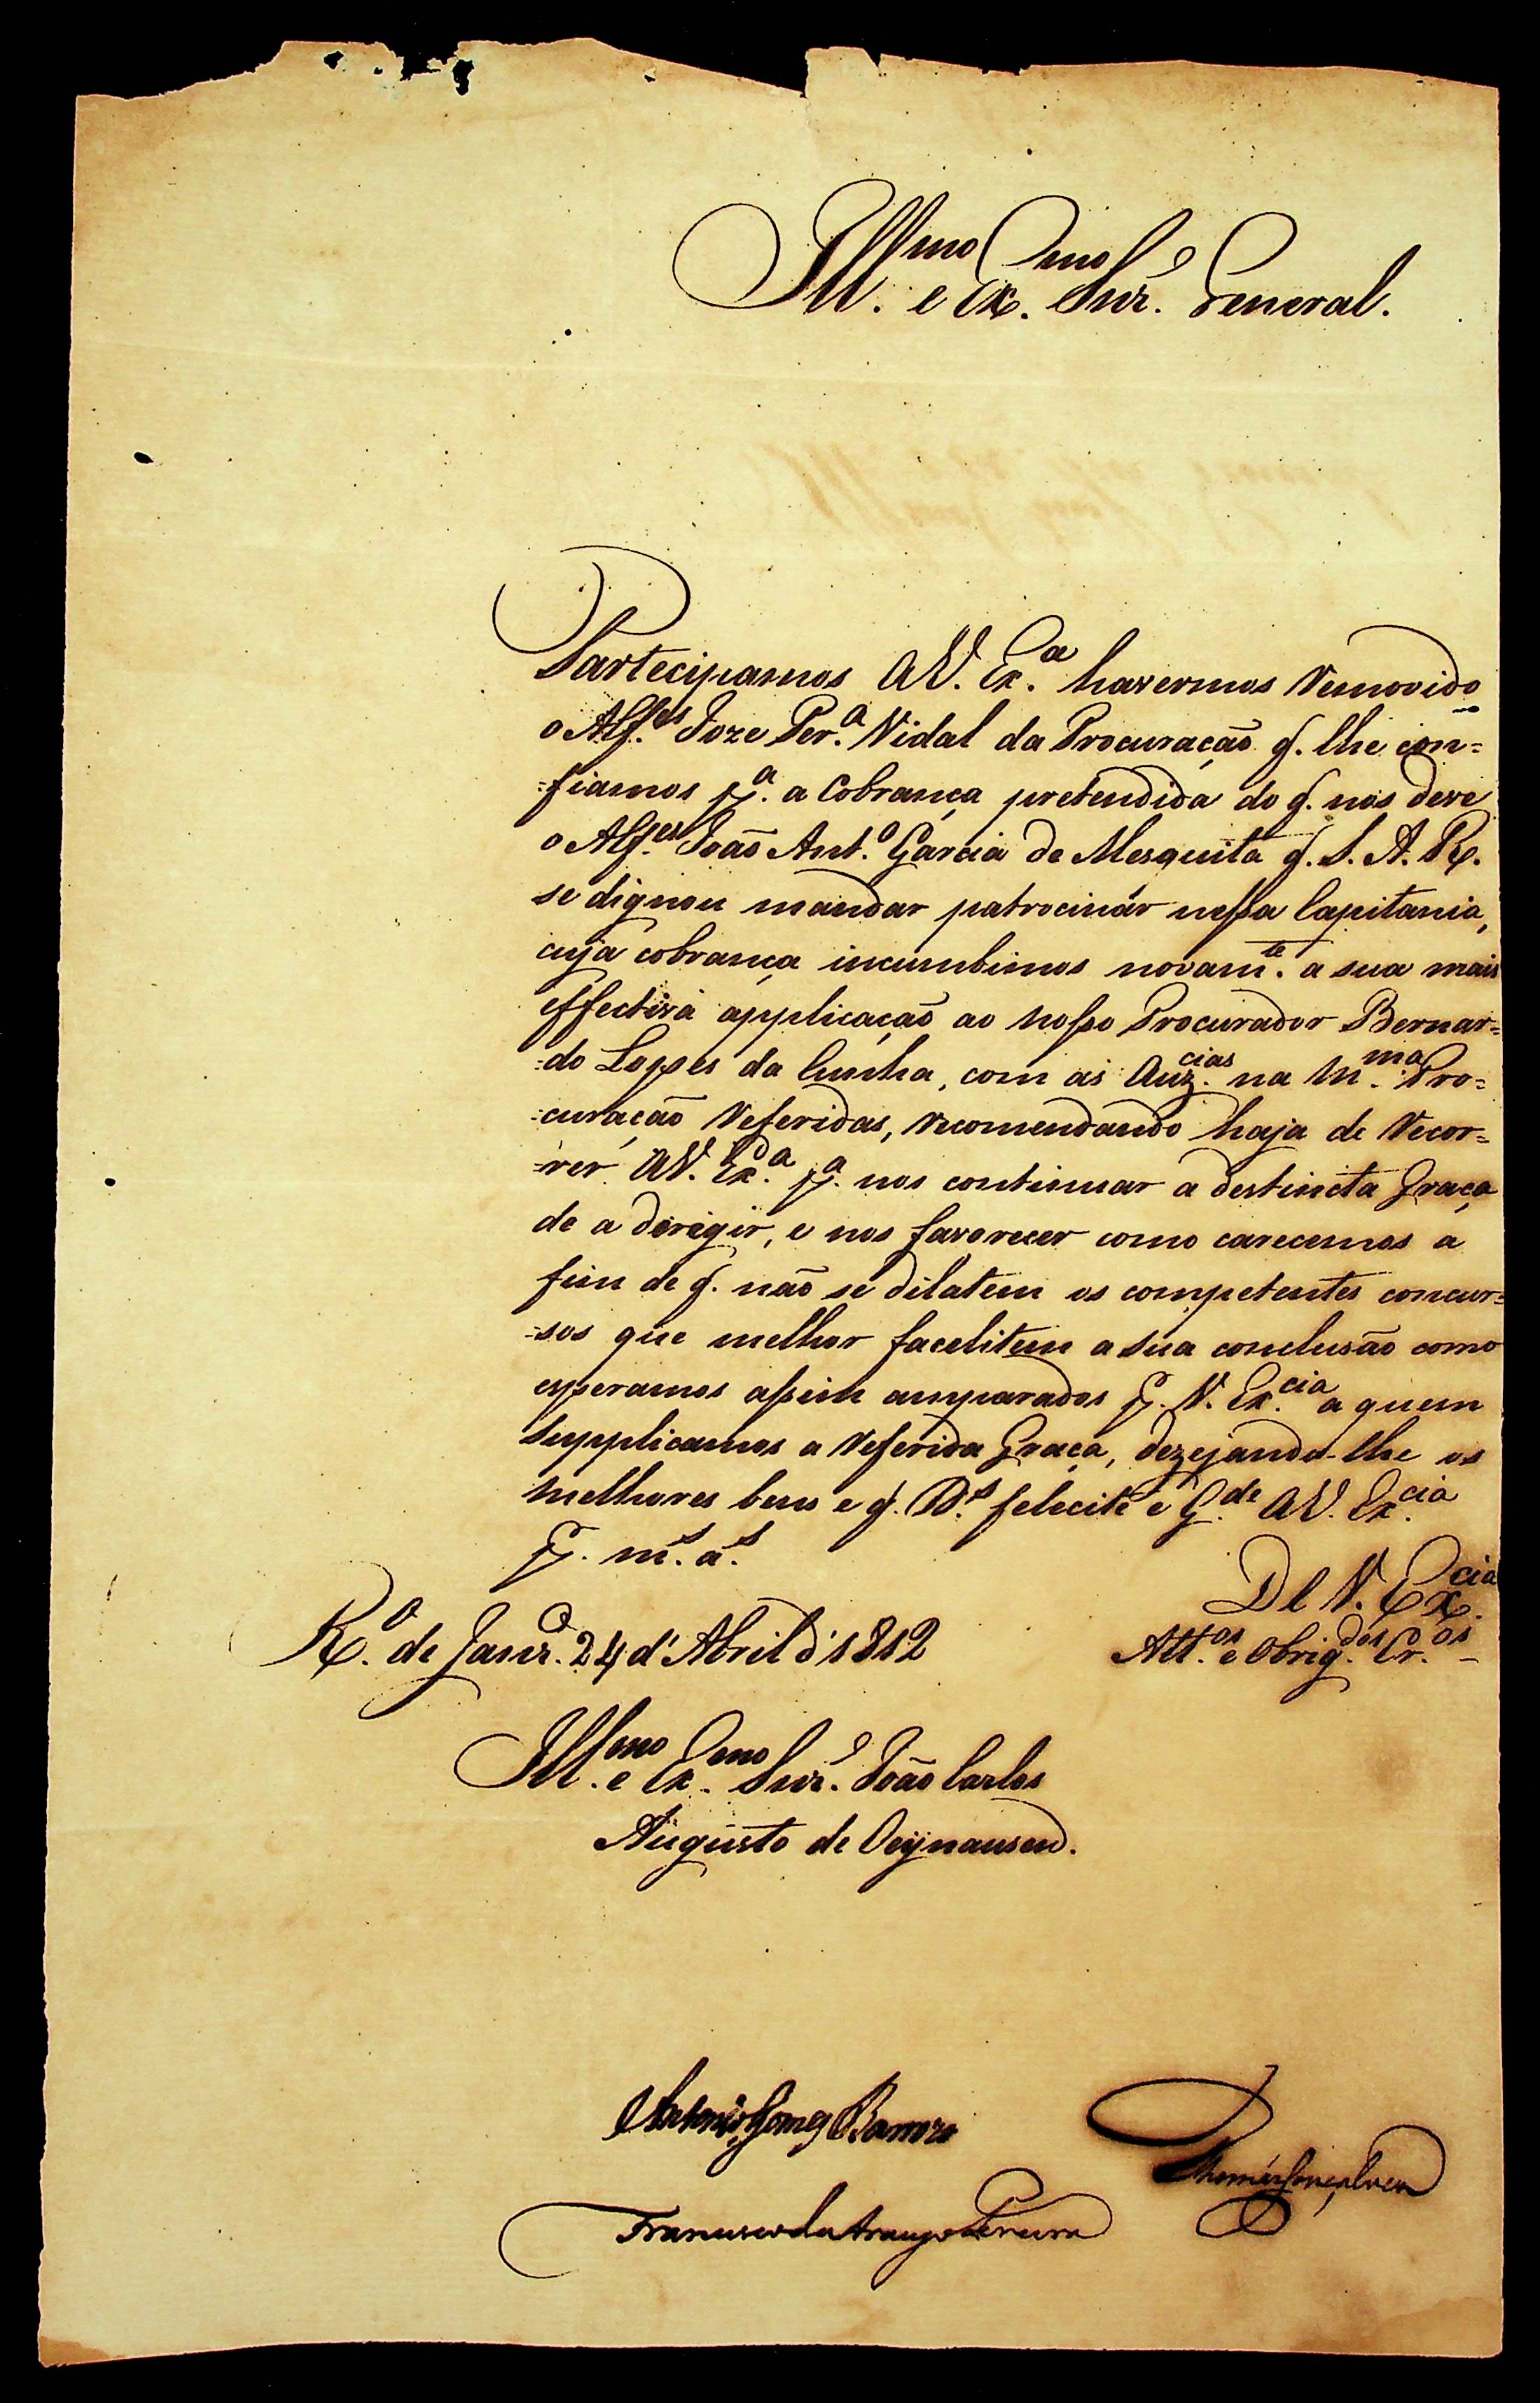 Ill.mo e Ex.mo Snr. General.
Partecipamos a V. Ex.a havermos removido
o Alf.es Joze Per.a Vidal da Procuração q. lhe con=
=fiamos p.a a Cobrança pretendida do q. nos deve
o Alf.es João Ant.o Garcia de Mesquita q. S. A. R.
se dignou mandar patrocinár nessa Capitania,
cuja cobrança incumbimos novam.te a sua mais
effectiva applicação ao nosso Procurador Bernar=
=do Lopes da Cunha, com as Auz.cias na m.ma Pro=
=curação referidas, recomendando haja de recor=
=rer a V. Ex.a p.a nos continuar a destincta Graça
de a dirigir, e nos favorecer como carecemos a
fim de q. não se dilatem os competentes concur=
=sos que melhor facelitem a sua conclusão como
esperamos assim amparados p. V. Ex.cia a quem
supplicamos a referida Graça, dezejando-lhe os
melhores bens e q. D.s felecite e G.de a V. Ex.cia
p. m.s a.s
De V. Ex.cia
R.o de Janr.o 24 d'Abril d'1812
Att.os e Obrig.dos Cr.os
Ill.mo e Ex.mo Snr. João Carlos
Augusto de Oeynausen.
Antonio Gomes Barrozo
Thomás Gonçalves
Francisco de Araujo Pereira